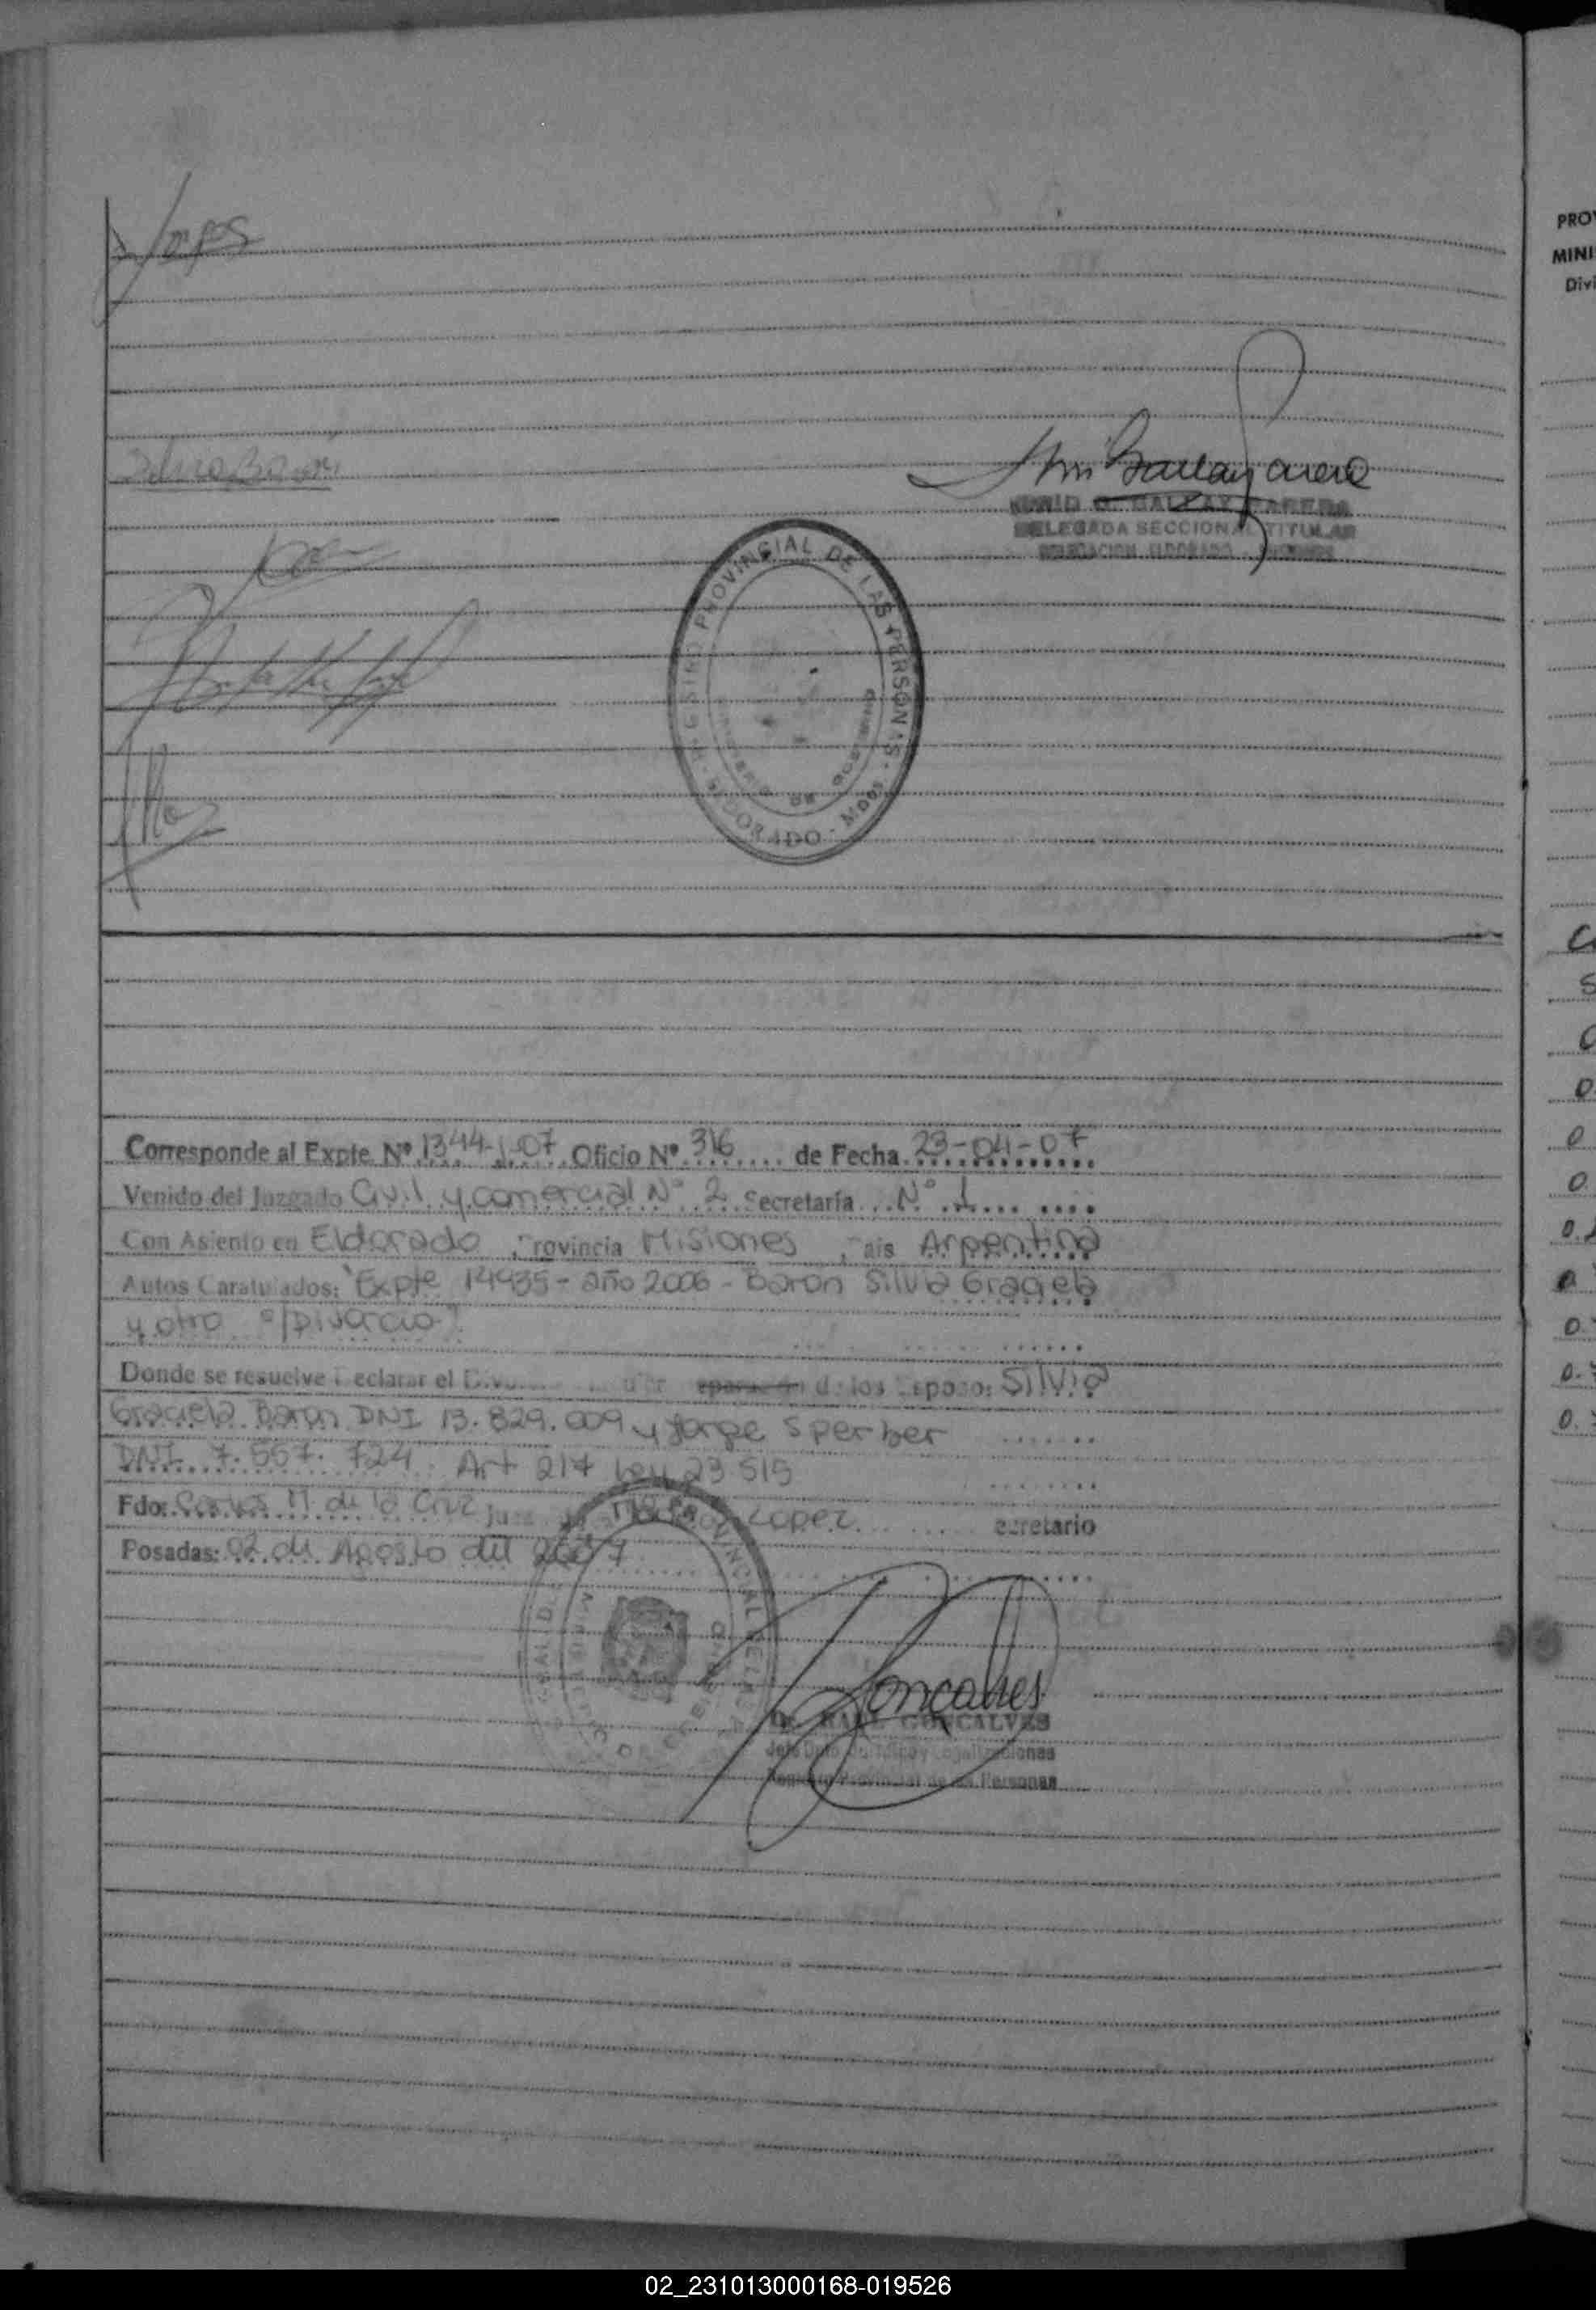 Silvia Baron
INGRID G. BALZAY CARERA
DELEGADA SECCIONAL TITULAR
DELEGACION ELDORADO - MISIONES
REGISTRO PROVINCIAL DE LAS PERSONAS - ELDORADO - Mnes.
MINISTERIO DE GOBIERNO
Corresponde al Expte. Nº 1344-J-07 Oficio Nº 316 de Fecha 23-04-07
Venido del Juzgado Civil y comercial Nº 2 Secretaría Nº 1
Con Asiento en Eldorado Provincia Misiones, Pais Argentina
Autos Caratulados: "Expte 14435 - año 2006 - Baron Silvia Graciela
y otro s/Divorcio".
Donde se resuelve Declarar el separación de los Esposos: Silvia
Graciela Baron DNI 13.829.009 y Jorge Sperber
DNI 7.557.724. Art 217 Ley 23515
Fdo: Carlos M. de la Cruz Juez Lopez Secretario
Posadas: 02 de Agosto del 2007
Goncalves
Dr. RAUL GONCALVES
Jefe Dpto. y Legalizaciones
Registro Provincial de las Personas
PRO
MINI
Divi
02_231013000168-019526